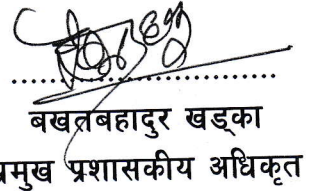 बखतबहादुर खड्का
प्रमुख प्रशासकीय अधिकृत